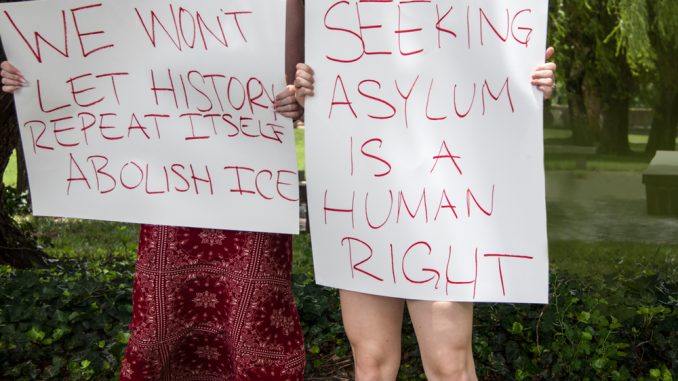 WE WON'T
LET HISTORY
REPEAT ITSELF
ABOLISH ICE
SEEKING
ASYLUM
IS A
HUMAN
RIGHT